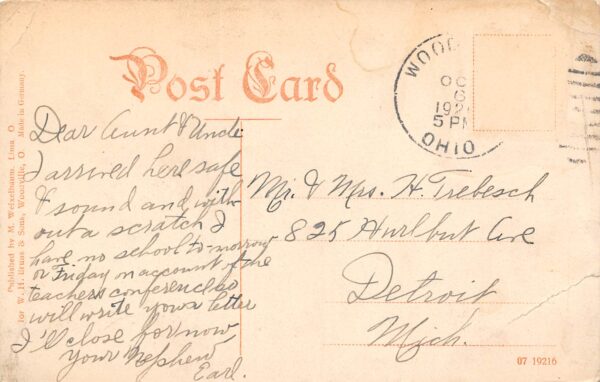 Post Card
WOOD
OC
6
192
5 PM
OHIO
Dear Aunt & Uncle
I arrived here safe
& sound and with
out a scratch I
have no school to-morrow
or Friday on account of the
teachers conference so
will write yous a letter
I'll close for now
your Nephew
Earl.
Mr. & Mrs. H. Trebesch
825 Hurlbut Ave
Detroit
Mich.
Published by M. Weixelbaum, Lima O.
for W. H. Kruse & Sons, Woodville, O. Made in Germany.
07 19216